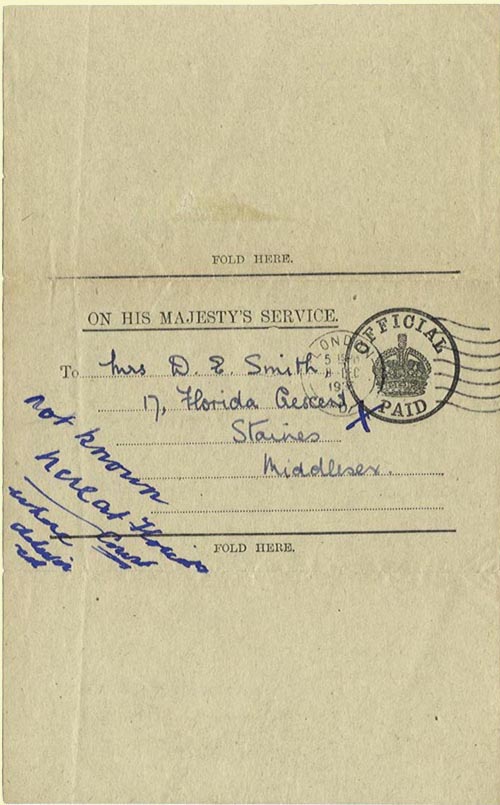 FOLD HERE.
ON HIS MAJESTY'S SERVICE.
OFFICIAL
PAID
To Mrs D. E. Smith
17, Florida Crescent
Staines
Middlesex.
not known
here at Florida
Cres
FOLD HERE.